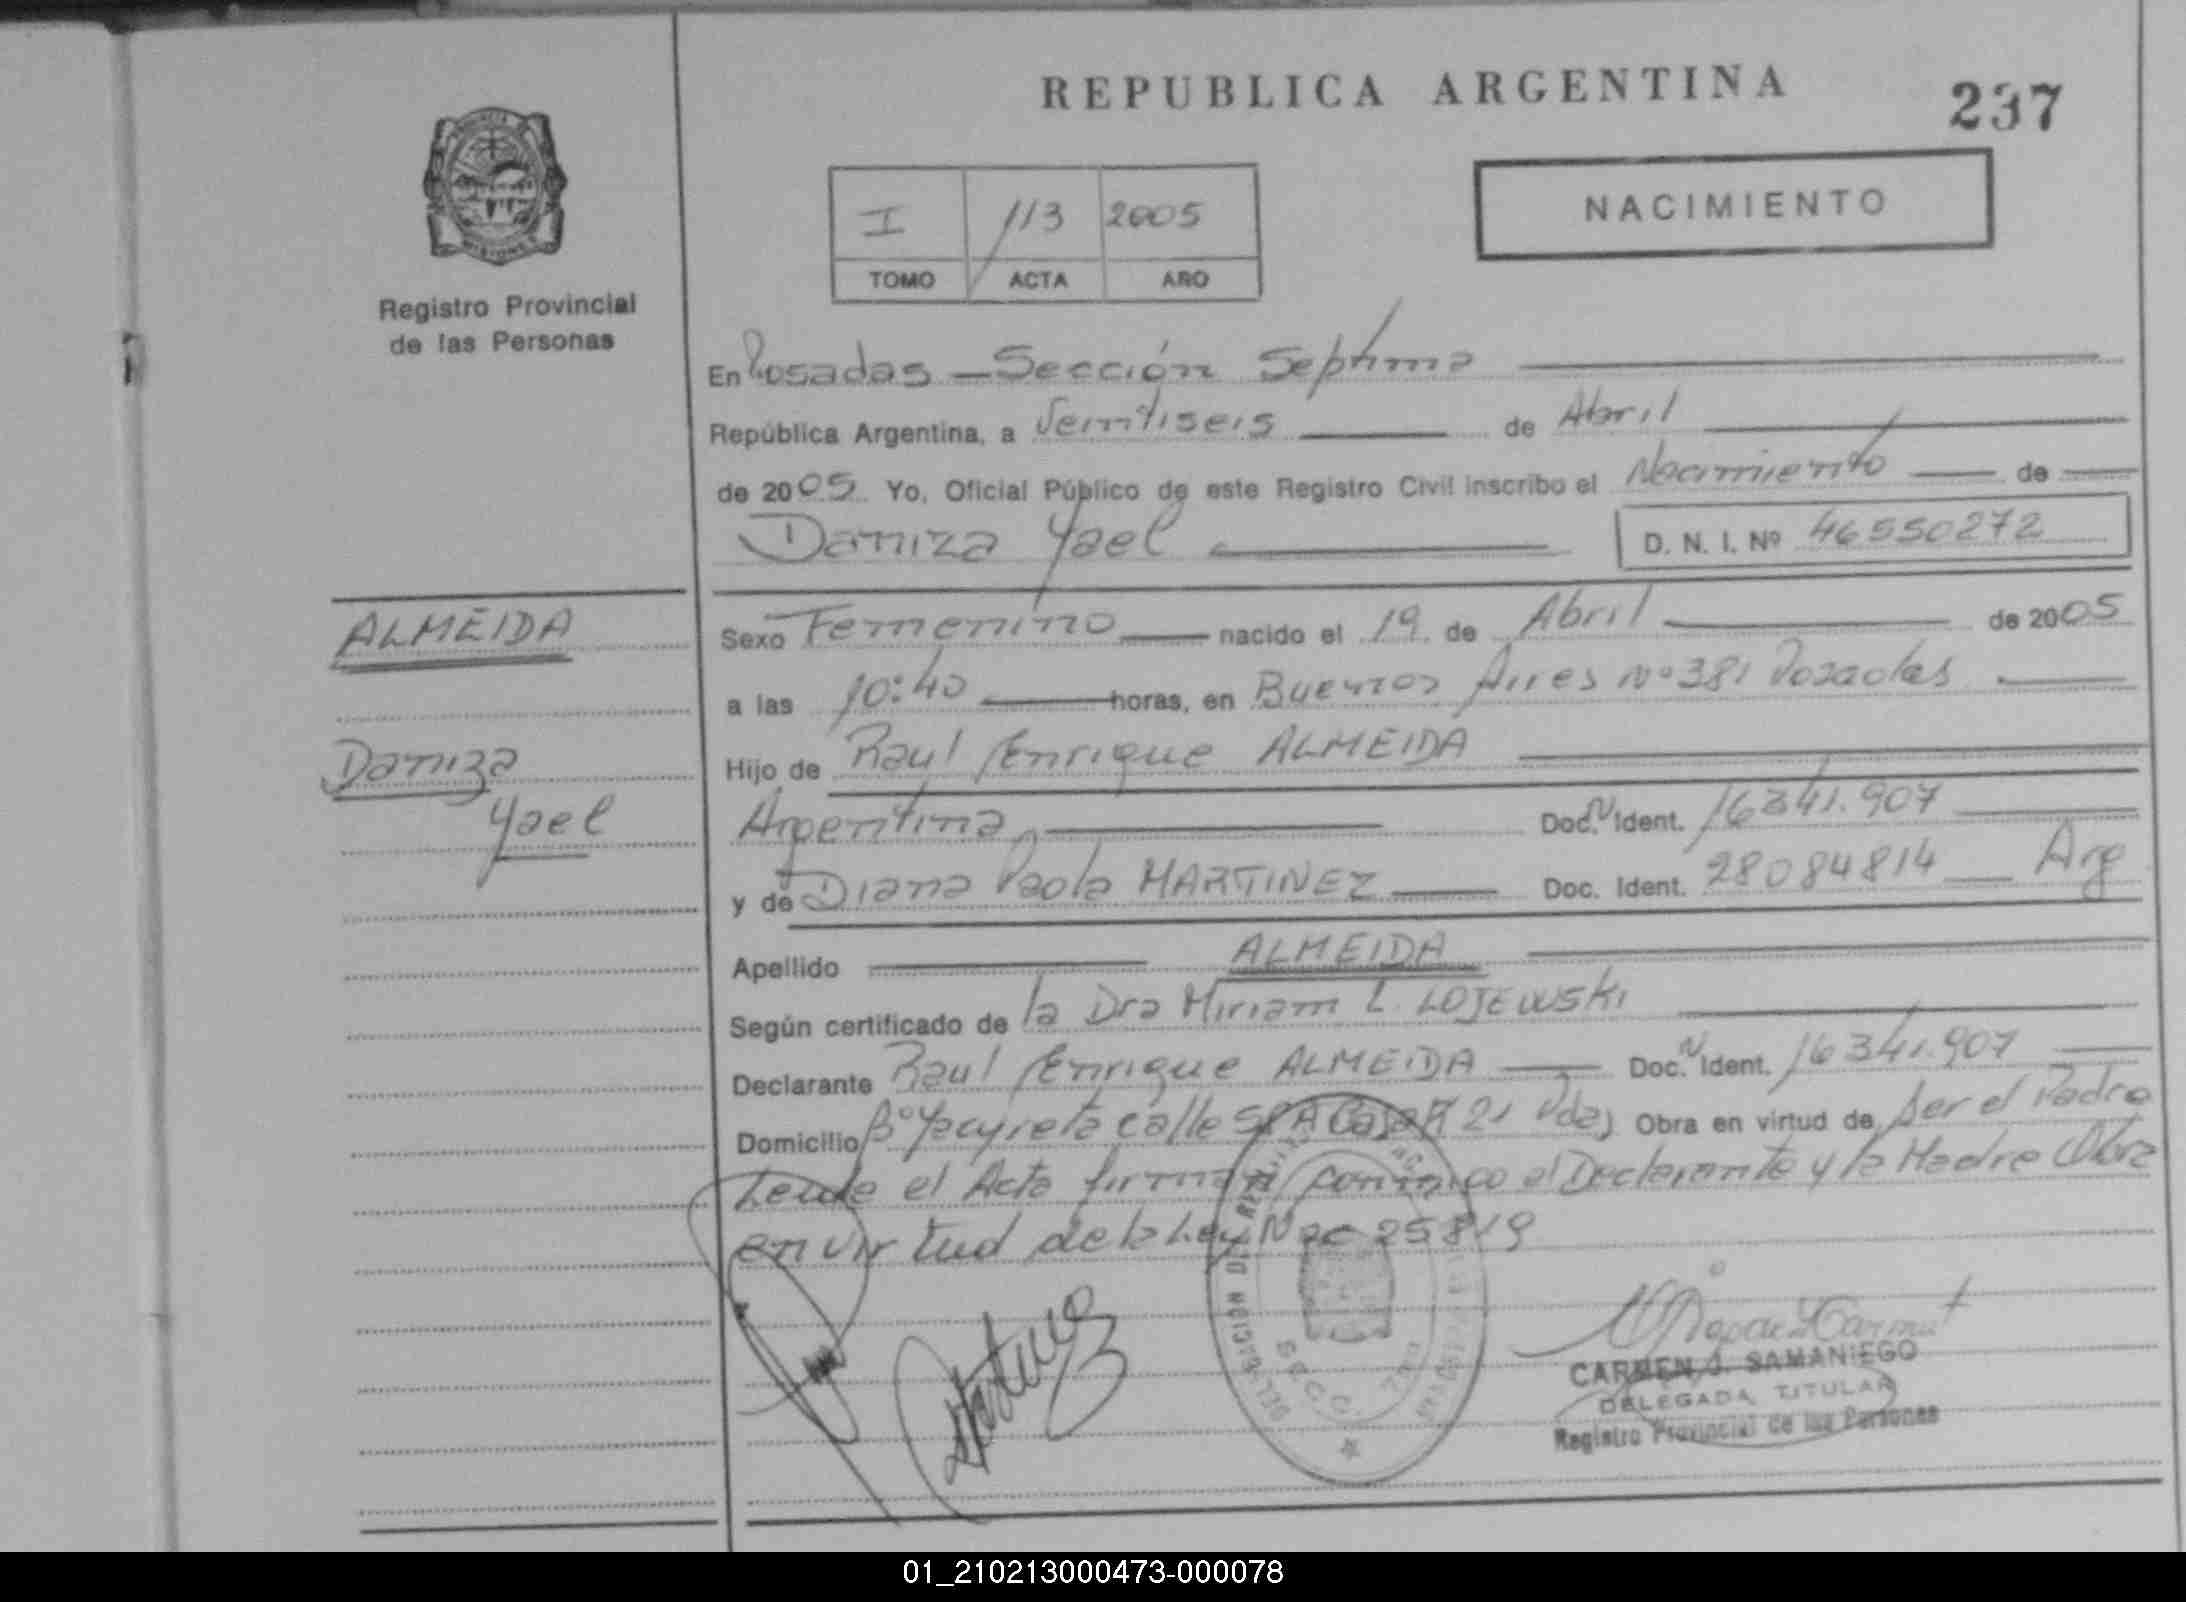 REPUBLICA ARGENTINA
237
NACIMIENTO
I 113 2005
TOMO ACTA AÑO
Registro Provincial
de las Personas
En Posadas - Sección Septima
República Argentina, a Veintiseis de Abril
de 2005 Yo, Oficial Público de este Registro Civil inscribo el Nacimiento de
Daniza Yael D. N. I. Nº 46550272
ALMEIDA
Daniza
Yael
Sexo Femenino nacido el 19 de Abril de 2005
a las 10:40 horas, en Buenos Aires Nº 381 Posadas
Hijo de Raul Enrique ALMEIDA
Argentina Doc. N Ident. 16341.907
y de Diana Paola MARTINEZ Doc. Ident. 28084814 Arg
Apellido ALMEIDA
Según certificado de la Dra Miriam L. LOJEWSKI
Declarante Raul Enrique ALMEIDA Doc. N Ident. 16341.907
Domicilio Bº Yacyreta calle Casa 21 Pdas Obra en virtud de ser el Padre
Leida el Acta firman conmigo el Declarante y la Madre Obra
en virtud de la Ley Nac 25819
SECC. 7MA
CARMEN J. SAMANIEGO
DELEGADA TITULAR
Registro Provincial de las Personas
01_210213000473-000078